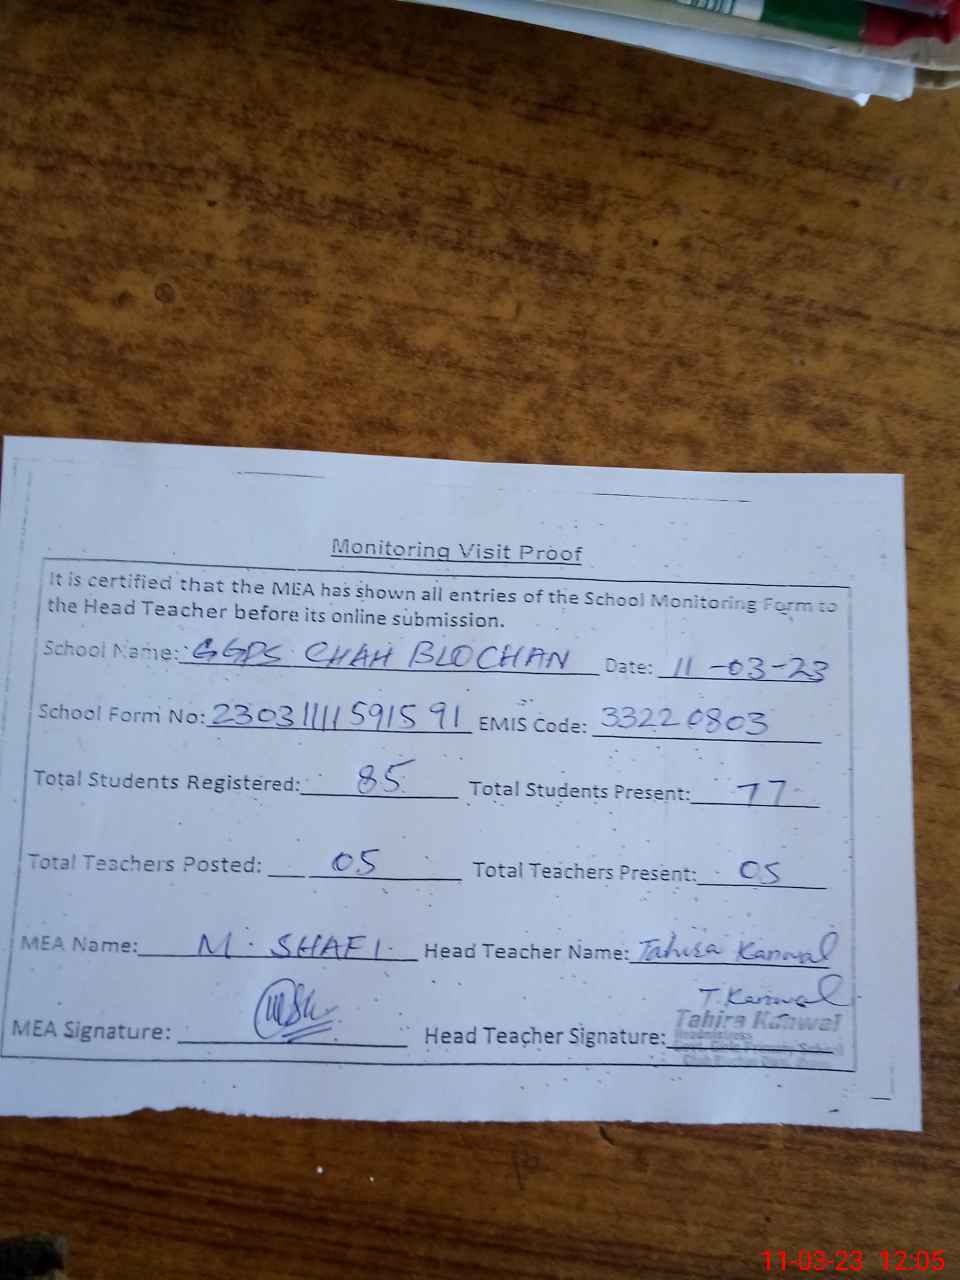 Monitoring Visit Proof
It is certified that the MEA has shown all entries of the School Monitoring Form to
the Head Teacher before its online submission.
School Name: GGPS CHAH BLOCHAN Date: 11-03-23
School Form No: 23031111591591 EMIS Code: 33220803
Total Students Registered: 85 Total Students Present: 77
Total Teachers Posted: 05 Total Teachers Present: 05
MEA Name: M. SHAFI Head Teacher Name: Tahira Kanwal
T. Kanwal
MEA Signature: Head Teacher Signature:
Tahira Kanwal
Headmistress
Govt. Girls Primary School
11-03-23 12:05